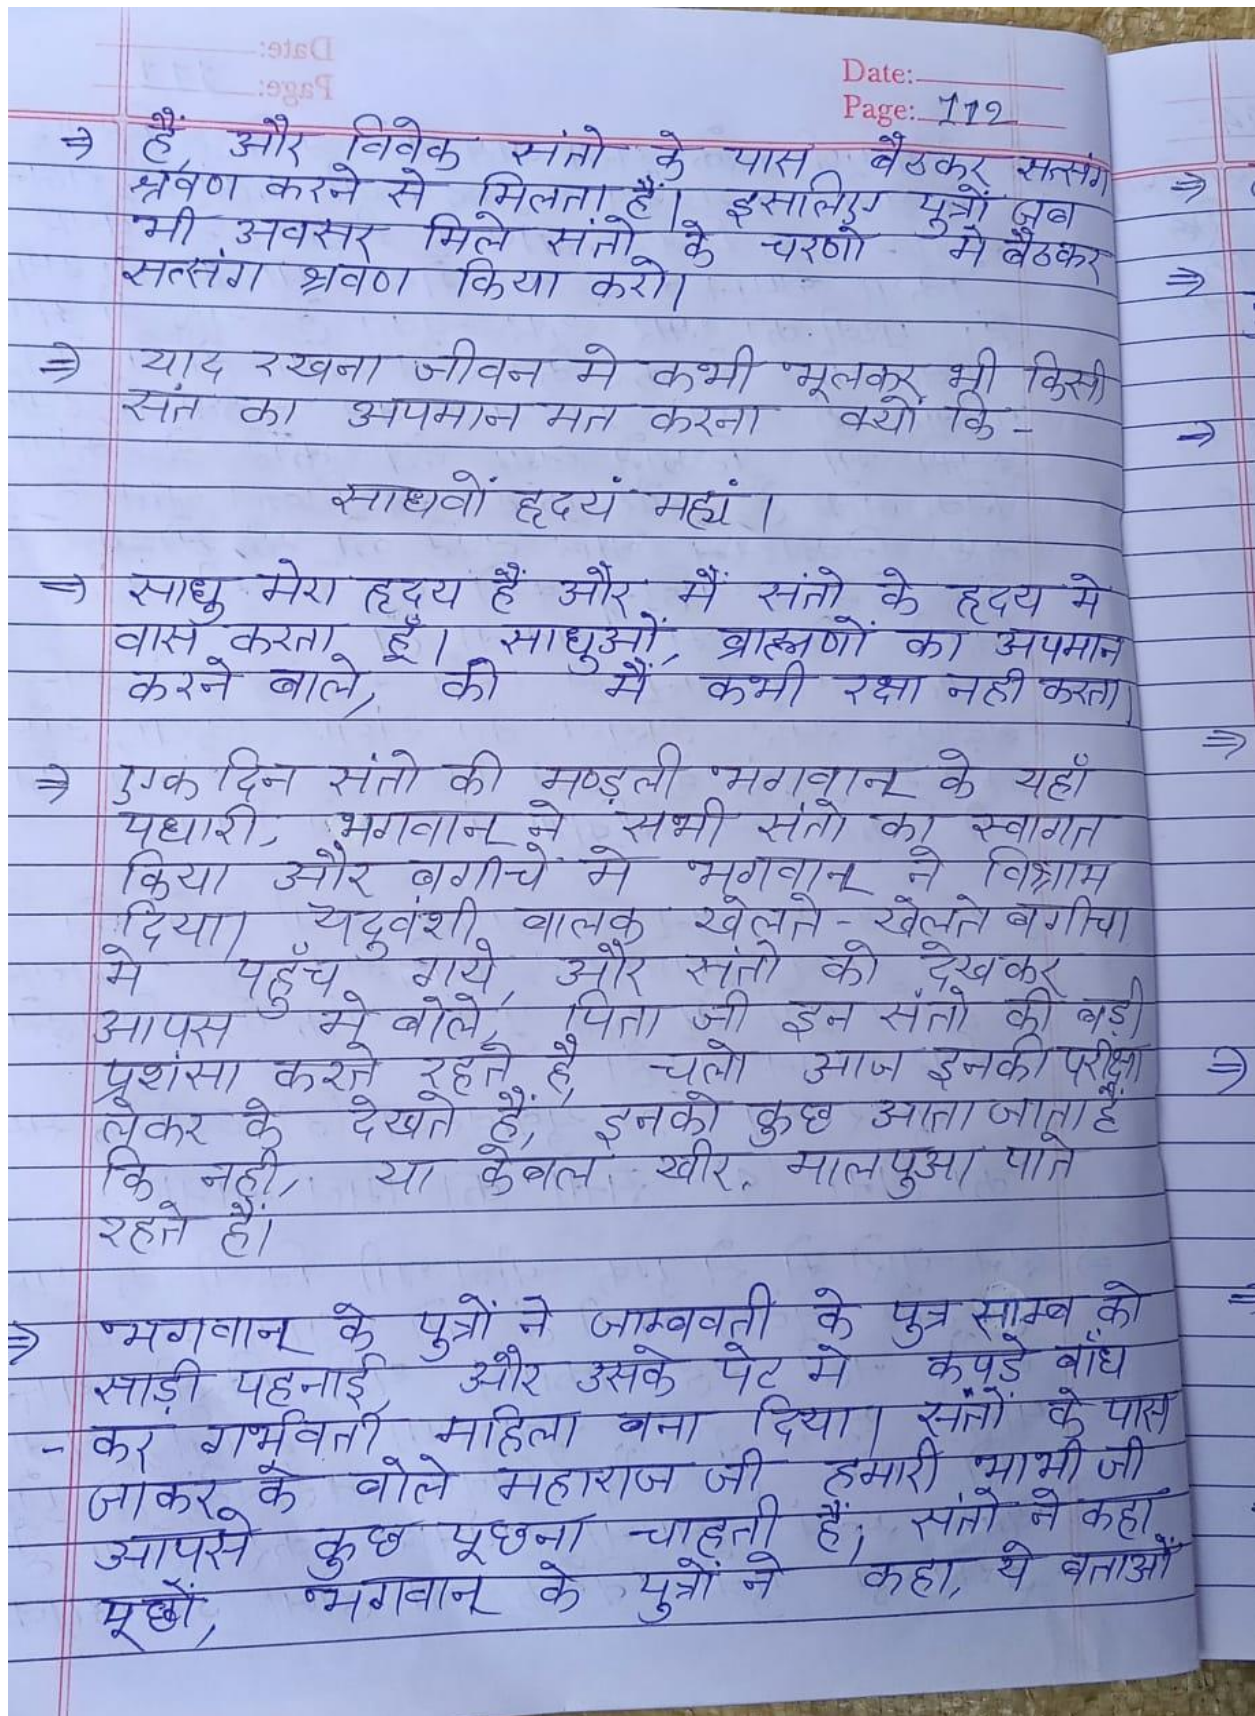 Date:
Page: 112
⇒ हैं, और विवेक संतो के पास बैठकर सत्संग
श्रवण करने से मिलता हैं। इसलिए पुत्रों जब
भी अवसर मिले संतो के चरणो मे बैठकर
सत्संग श्रवण किया करो।
⇒ याद रखना जीवन मे कभी भूलकर भी किसी
संत का अपमान मत करना क्यों कि -
साधवों हृदयं मह्यं।
⇒ साधु मेरा हृदय हैं और मैं संतो के हृदय मे
वास करता हूँ। साधुओं, ब्राह्मणों का अपमान
करने बाले, की मैं कभी रक्षा नही करता।
⇒ एक दिन संतो की मण्ड़ली भगवान् के यहाँ
पधारी, भगवान् ने सभी संतो का स्वागत
किया और बगीचे मे भगवान् ने विश्राम
दिया। यदुवंशी बालक खेलते - खेलते बगीचा
मे पहुँच गये, और संतो को देखकर
आपस मे बोले, पिता जी इन संतो की बड़ी
प्रशंसा करते रहते है, चलो आज इनकी परीक्षा
लेकर के देखते हैं, इनको कुछ आता जाता हैं
कि नही, या केबल खीर, मालपुआ पाते
रहते हैं।
⇒ भगवान् के पुत्रों ने जाम्बवती के पुत्र साम्ब को
साड़ी पहनाई, और उसके पेट मे कपड़े बाँध
- कर गर्भवती महिला बना दिया। संतों के पास
जाकर के बोले महाराज जी हमारी भाभी जी
आपसे कुछ पूछना चाहती हैं, संतो ने कहा
पूछों, भगवान् के पुत्रों ने कहा, ये बताओं